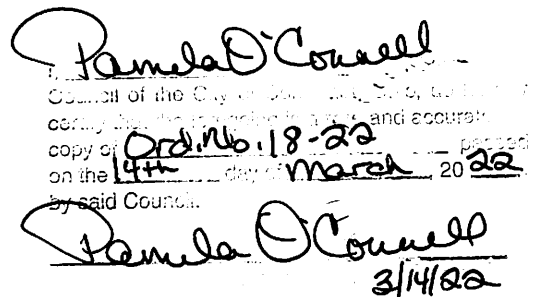 Pamela O'Connell
Council of the City of
certify that the and accurate
copy of Ord. No. 18-22 passed
on the 14th day of March, 2022
by said Council.
Pamela O'Connell
3/14/22